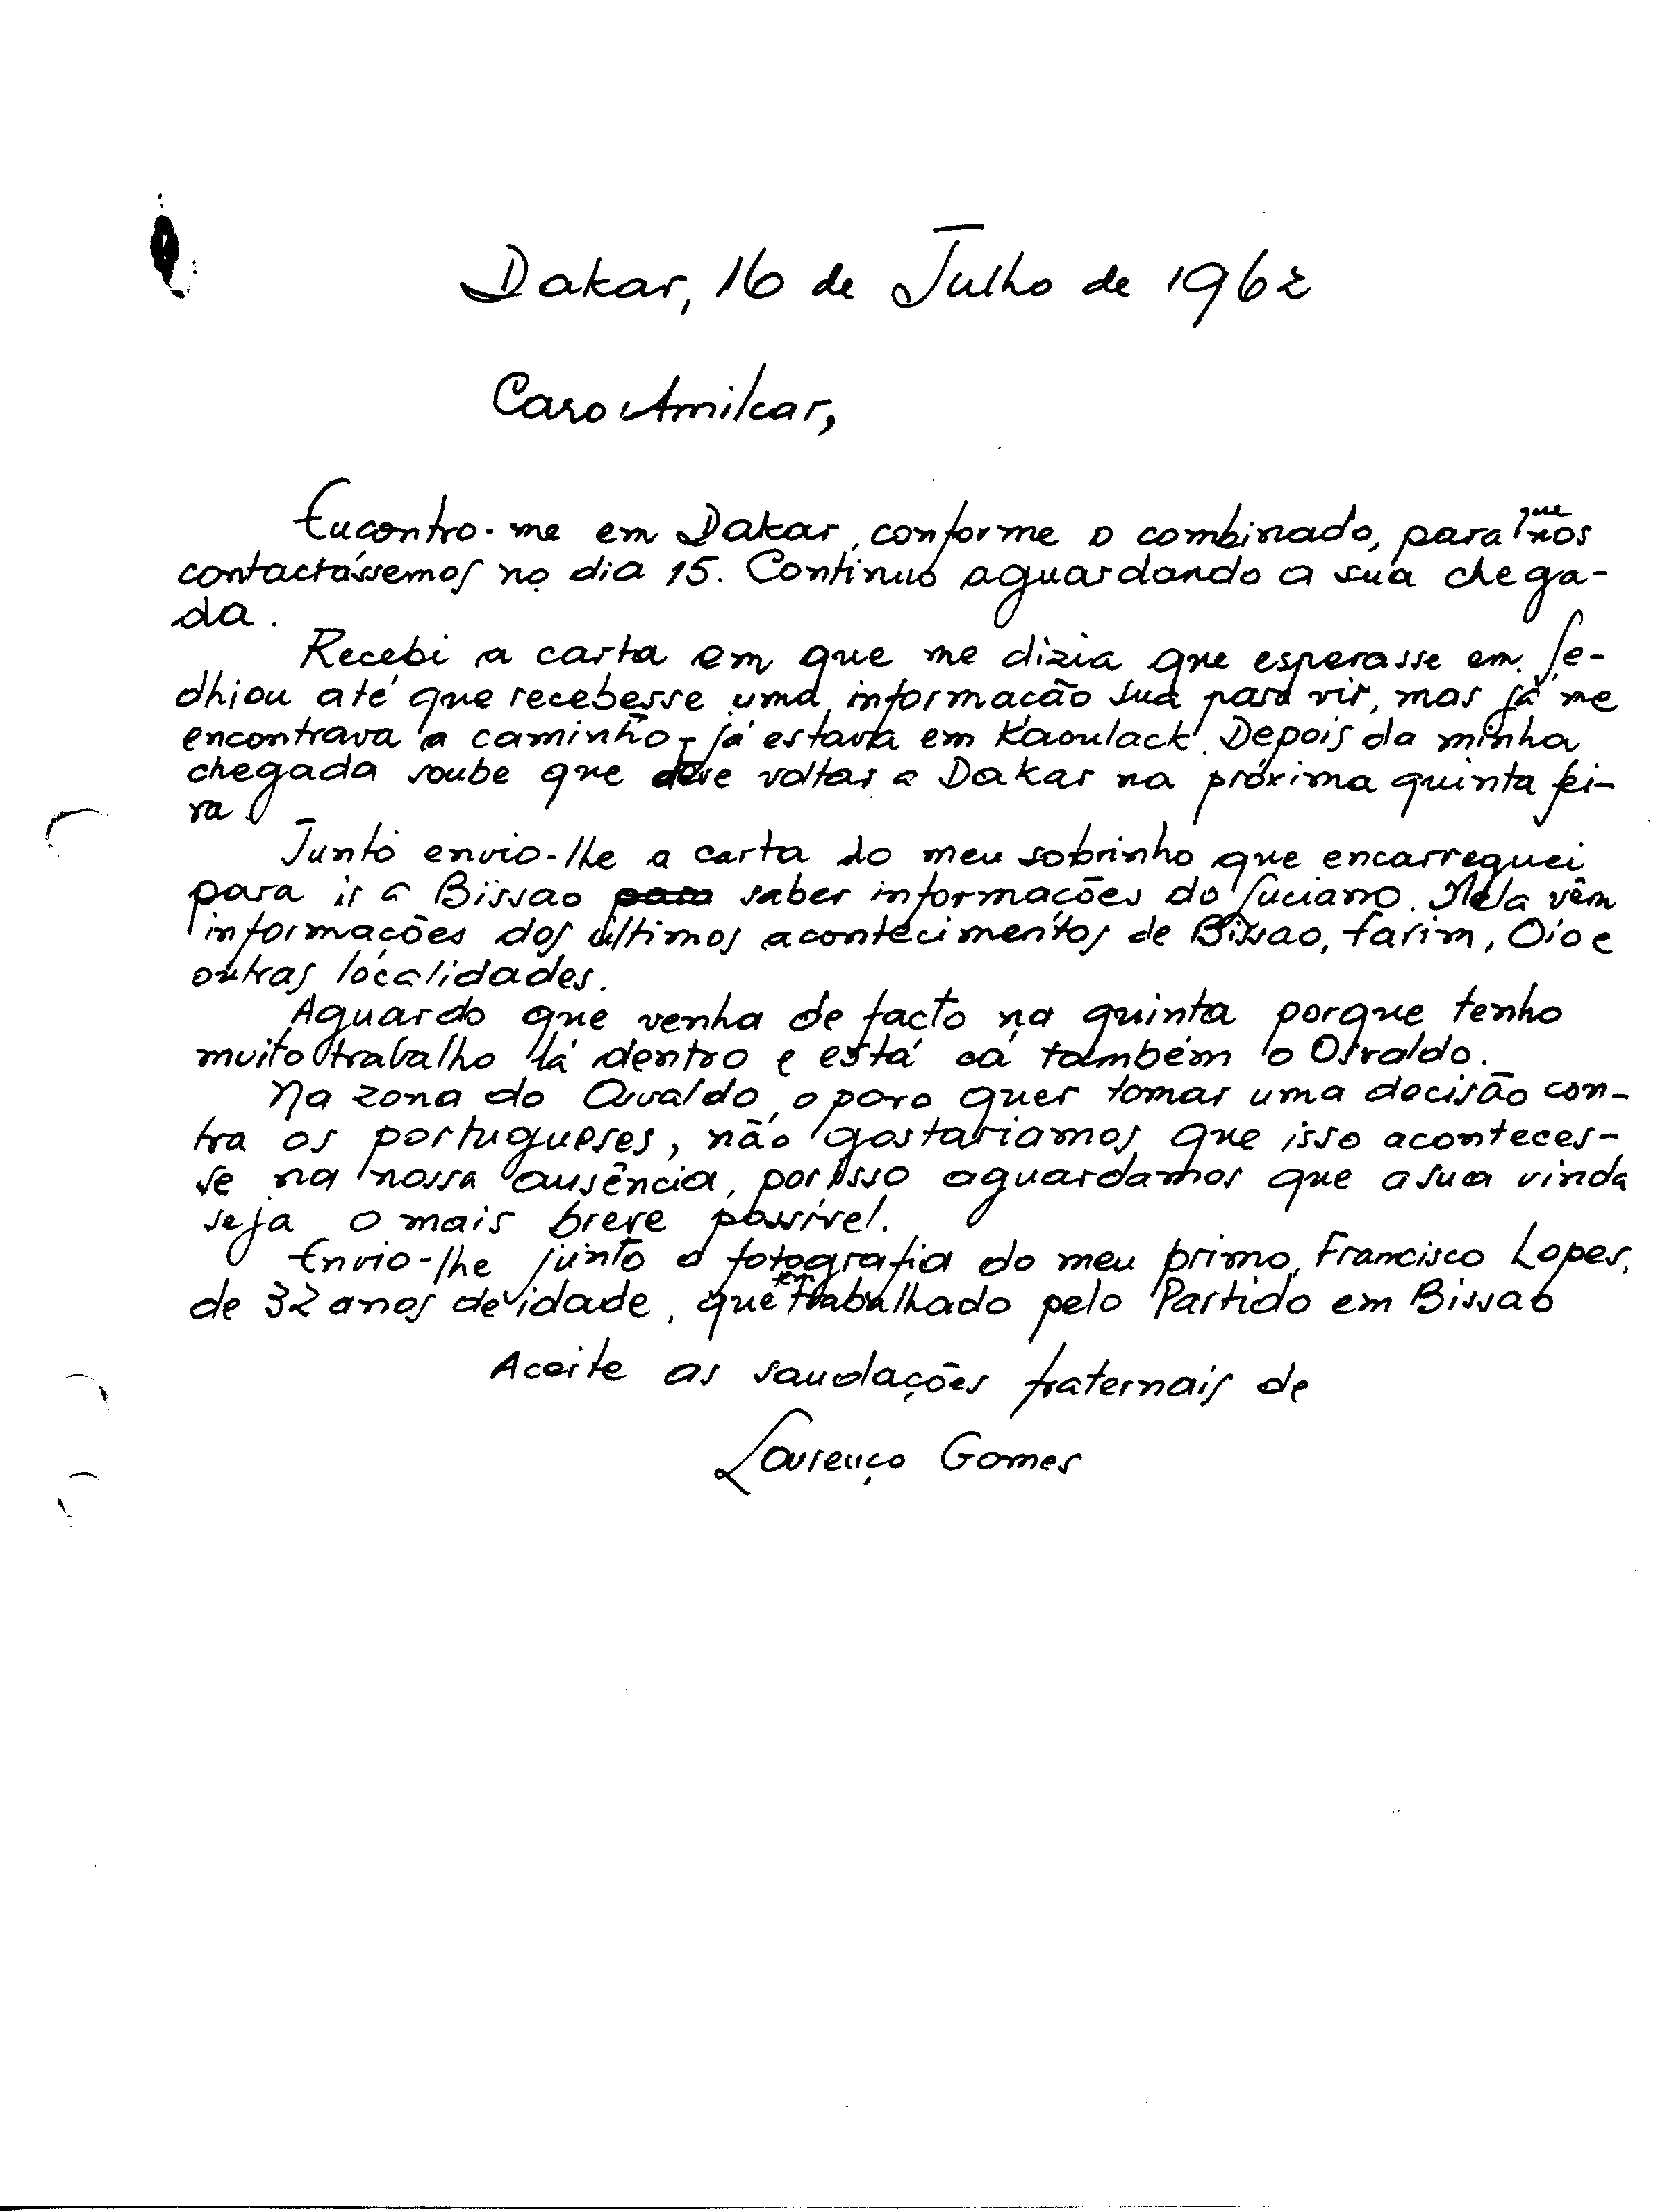 Dakar, 16 de Julho de 1962
Caro Amilcar,
Encontro-me em Dakar, conforme o combinado, para que nos
contactássemos no dia 15. Continuo aguardando a sua chega-
da.
Recebi a carta em que me dizia que esperasse em Se-
dhiou até que recebesse uma informação sua para vir, mas já me
encontrava a caminho - já estava em Kaoulack. Depois da minha
chegada soube que deve voltar a Dakar na próxima quinta fei-
ra.
Junto envio-lhe a carta do meu sobrinho que encarreguei
para ir a Bissao para saber informações do Luciano. Nela vêm
informações dos últimos acontecimentos de Bissao, Farim, Oio e
outras localidades.
Aguardo que venha de facto na quinta porque tenho
muito trabalho lá dentro e está cá também o Osvaldo.
Na zona do Osvaldo, o povo quer tomar uma decisão con-
tra os portugueses, não gostariamos que isso aconteces-
se na nossa ausência, por isso aguardamos que a sua vinda
seja o mais breve possível.
Envio-lhe junto a fotografia do meu primo, Francisco Lopes,
de 32 anos de idade, que tem trabalhado pelo Partido em Bissao
Aceite as saudações fraternais de
Lourenço Gomes